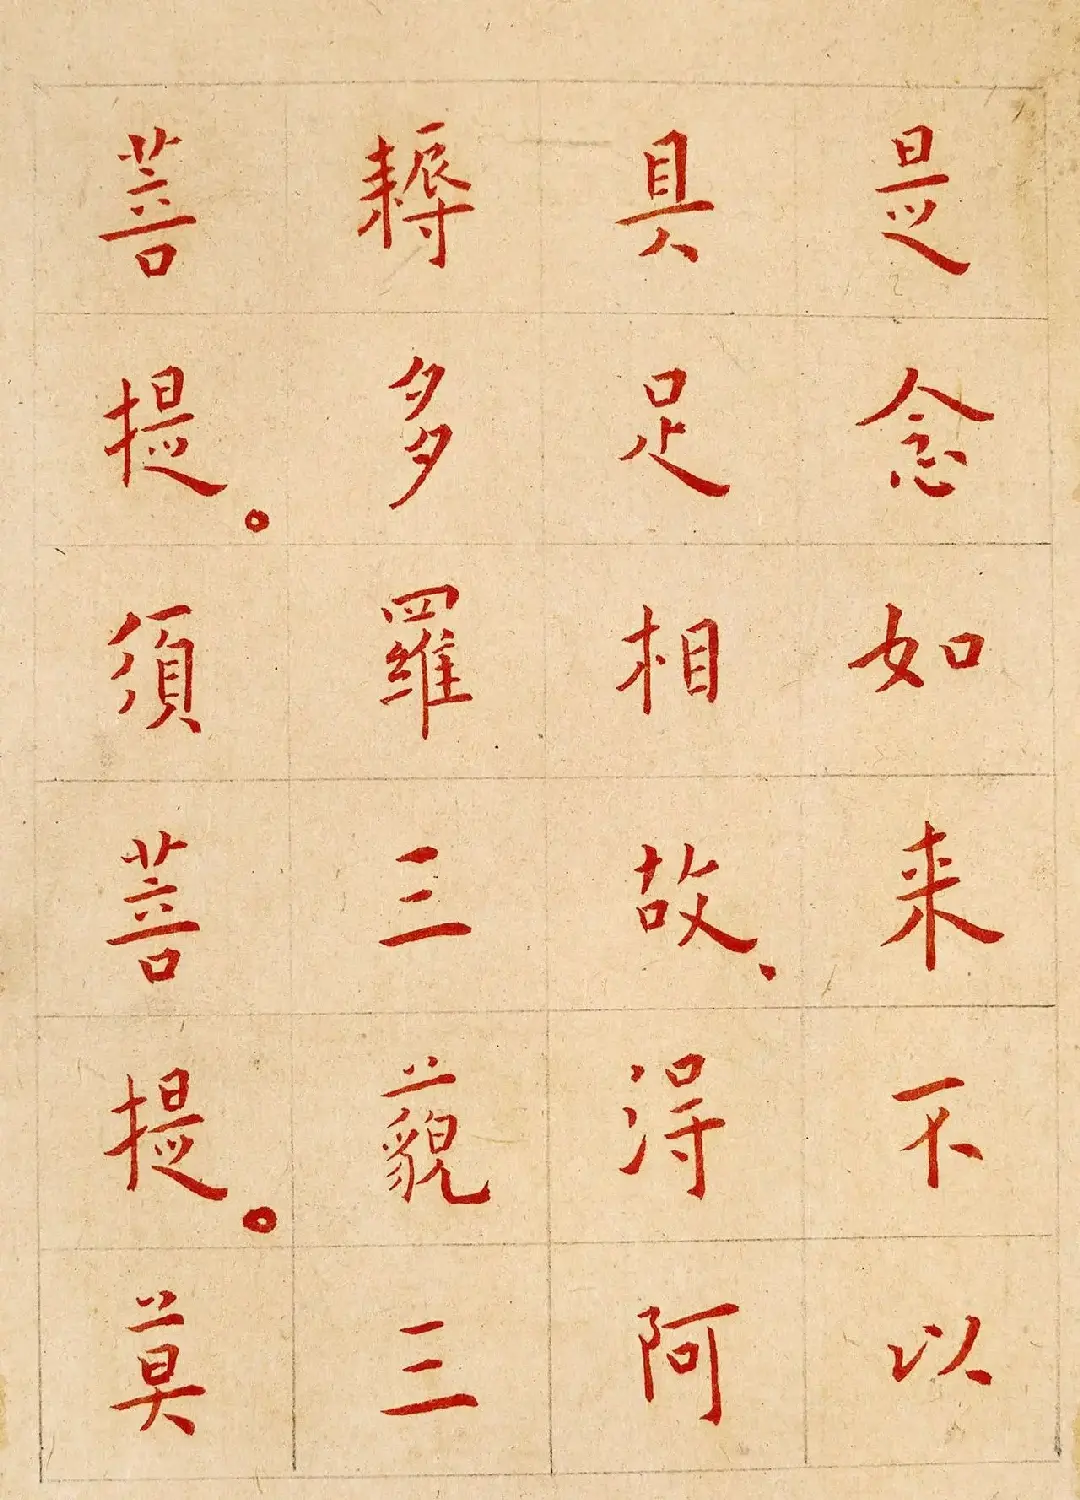 是念如来不以
具足相故、得阿
耨多羅三藐三
菩提。須菩提。莫